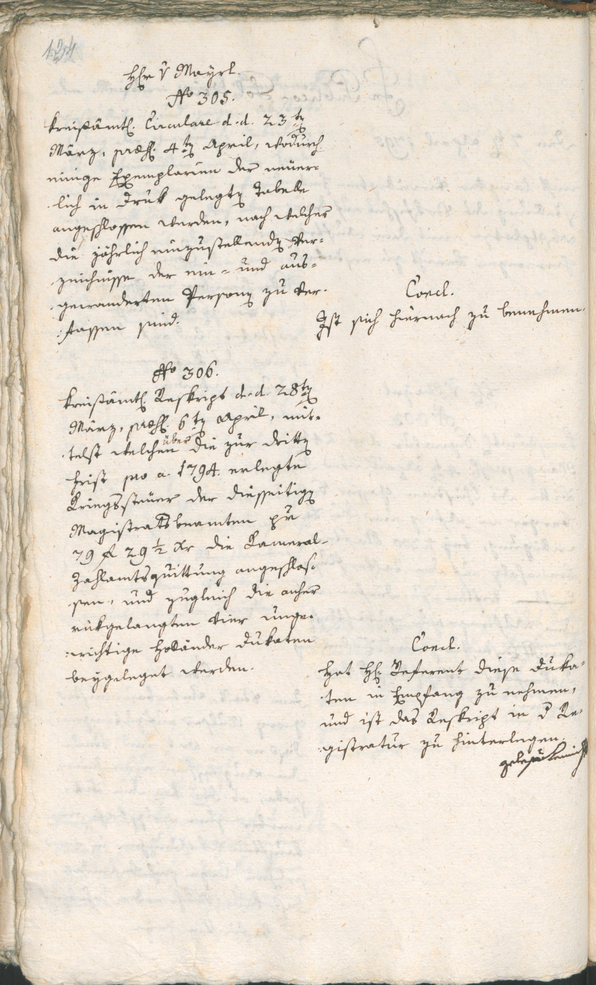 134
H: v Mayrl.
No 305.
Kreisämtl. Circulare d. d. 23tn
März, præs. 4tn April, wodurch
einige Exemplarien der neuer-
lich in Druk gelegtn Tabele
angeschlossen werden, nach welcher
die jährlich einzustellendn Ver-
zeichnisse der ein- und aus-
gewanderten Personn zu ver-
fassen sind.
Concl.
Ist sich hiernach zu benehmen.
No 306.
Kreisämtl. Reskript d. d. 28tn
März, præs. 6tn April, mit-
telst welchen über die zur drittn
Frist pro a. 1794 erlegte
Kriegssteuer der diesseitign
Magistratsbeamten per
79 f 29 1/2 Xr die Kameral-
Zahlamtsquittung angeschlos-
sen, und zugleich die anher
rükgelangten vier unge-
wichtige Holländer Dukaten
beygeleget werden.
Concl.
Hat H: Referent diese Duka-
ten in Empfang zu nehmen,
und ist das Reskript in d Re-
gistratur zu hinterlegen.